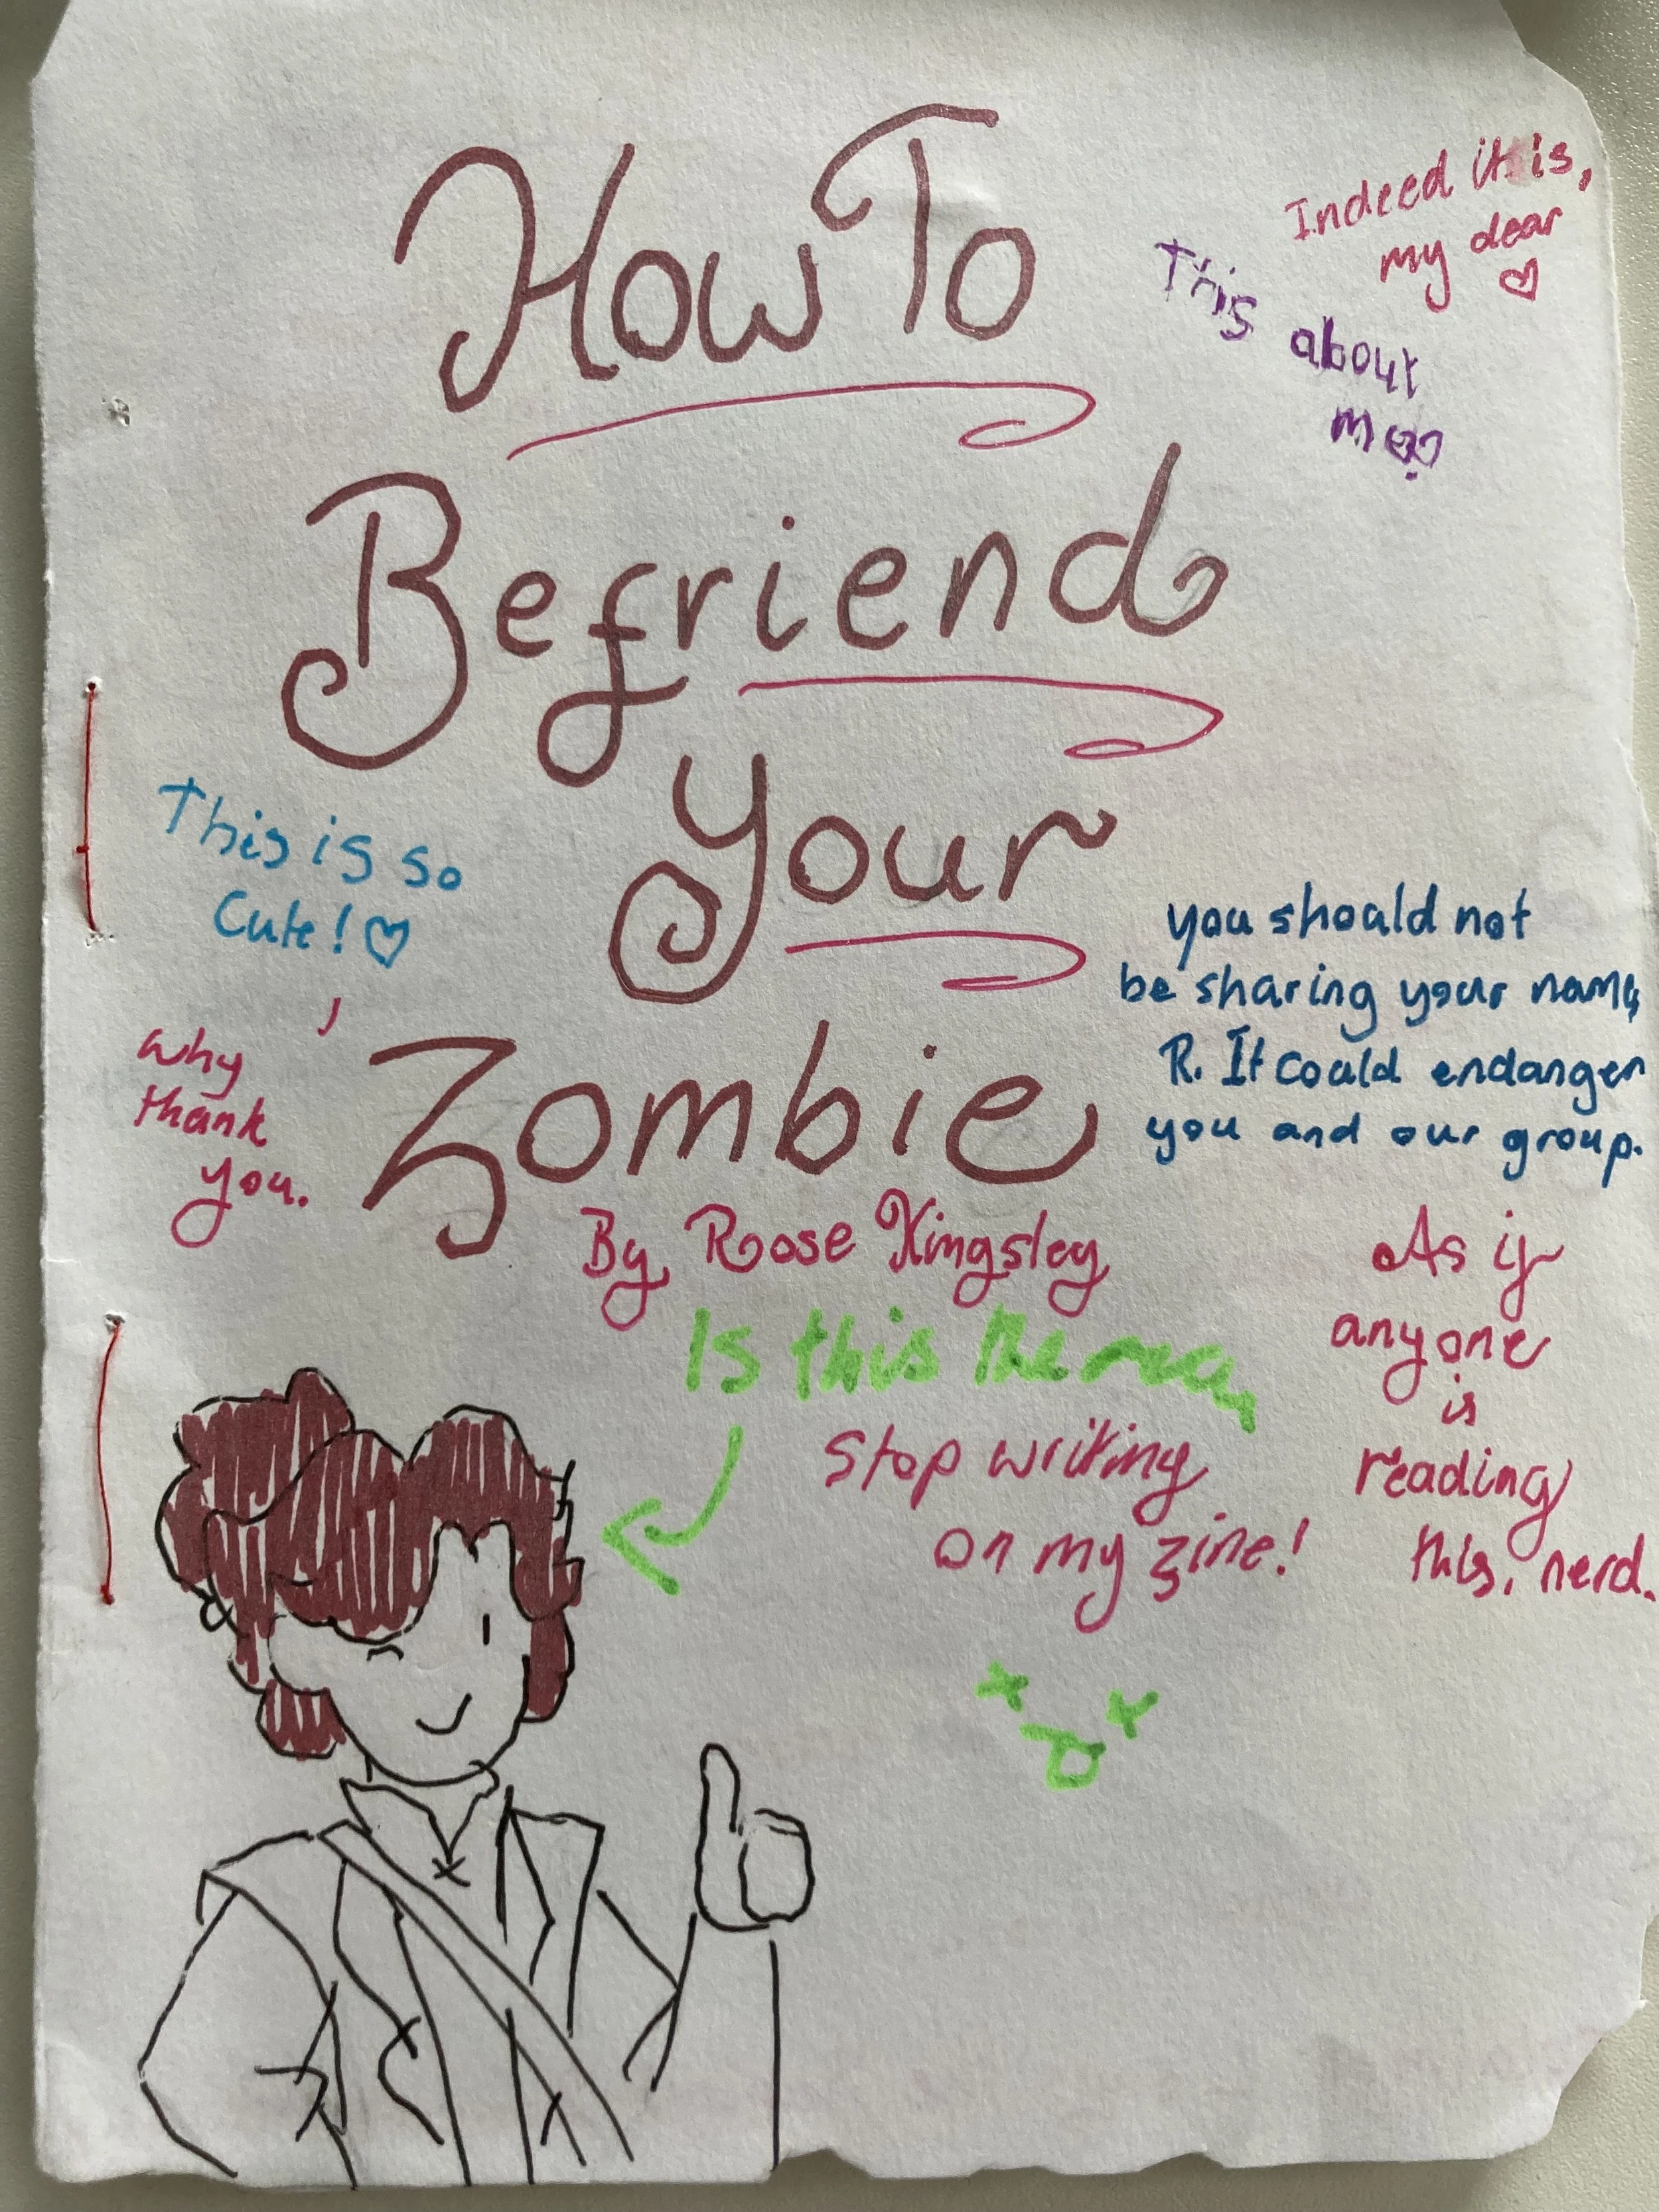 How To
Befriend
Your
Zombie
By Rose Kingsley
Indeed it is,
my dear
♡
This
about
me
This is so
Cute! ♡
Why
thank
you.
you should not
be sharing your name,
R. It could endanger
you and our group.
As if
anyone
is
reading
this, nerd.
Is this
Stop writing
on my zine!